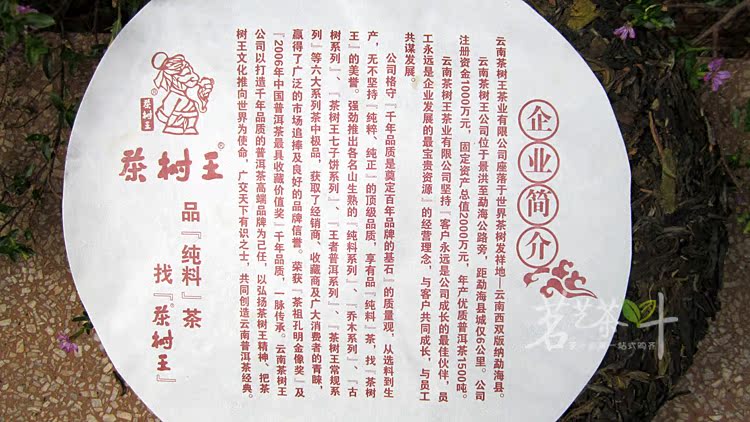 企业简介
云南茶树王茶业有限公司座落于世界茶树发祥地—云南西双版纳勐海县。
云南茶树王公司位于景洪至勐海公路旁,距勐海县城仅6公里。公司
注册资金1000万元,固定资产总值2000万元,年产优质普洱茶1500吨。
云南茶树王茶业有限公司坚持『客户永远是公司成长的最佳伙伴,员
工永远是企业发展的最宝贵资源』的经营理念,与客户共同成长,与员工
共谋发展。
公司恪守『千年品质是奠定百年品牌的基石』的质量观,从选料到生
产,无不坚持『纯粹、纯正』的顶级品质,享有品『纯料』茶,找『茶树
王』的美誉。强劲推出各名山生熟的『纯料系列』、『乔木系列』、『古
树系列』、『茶树王七子饼系列』、『王者普洱系列』、『茶树王常规系
列』等六大系列茶中极品,获取了经销商、收藏商及广大消费者的青睐,
赢得了广泛的市场追捧及良好的品牌信誉。荣获『茶祖孔明金像奖』及
『2006年中国普洱茶最具收藏价值奖』千年品质,一脉传承。云南茶树王
公司以打造千年品质的普洱茶高端品牌为己任,以弘扬茶树王精神、把茶
树王文化推向世界为使命,广交天下有识之士,共同创造云南普洱茶经典。
茶树王
茶树王®
品『纯料』茶
找『茶树王』
茗艺茶叶
一站式购齐